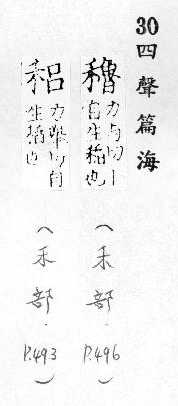 30四聲篇海
穭
力与切丨
自生稻也
（禾部．P.496）
稆
力舉切自
生稻也
（禾部．P.493）